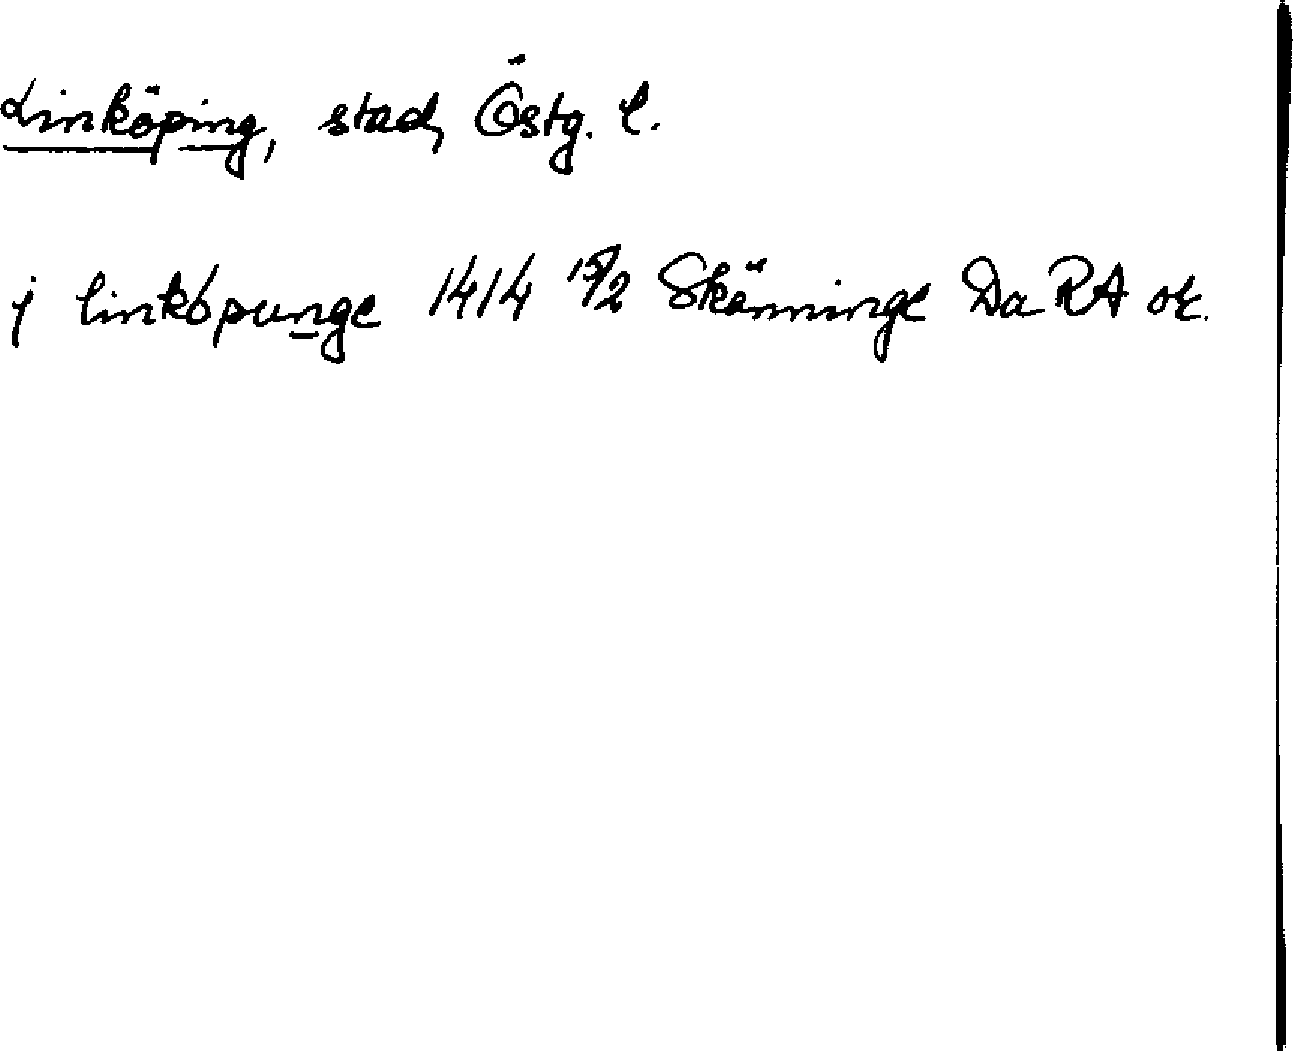 Linköping, stad, Östg. l.
j linkøpunge 1414 15/2 Skänninge Da RA or.